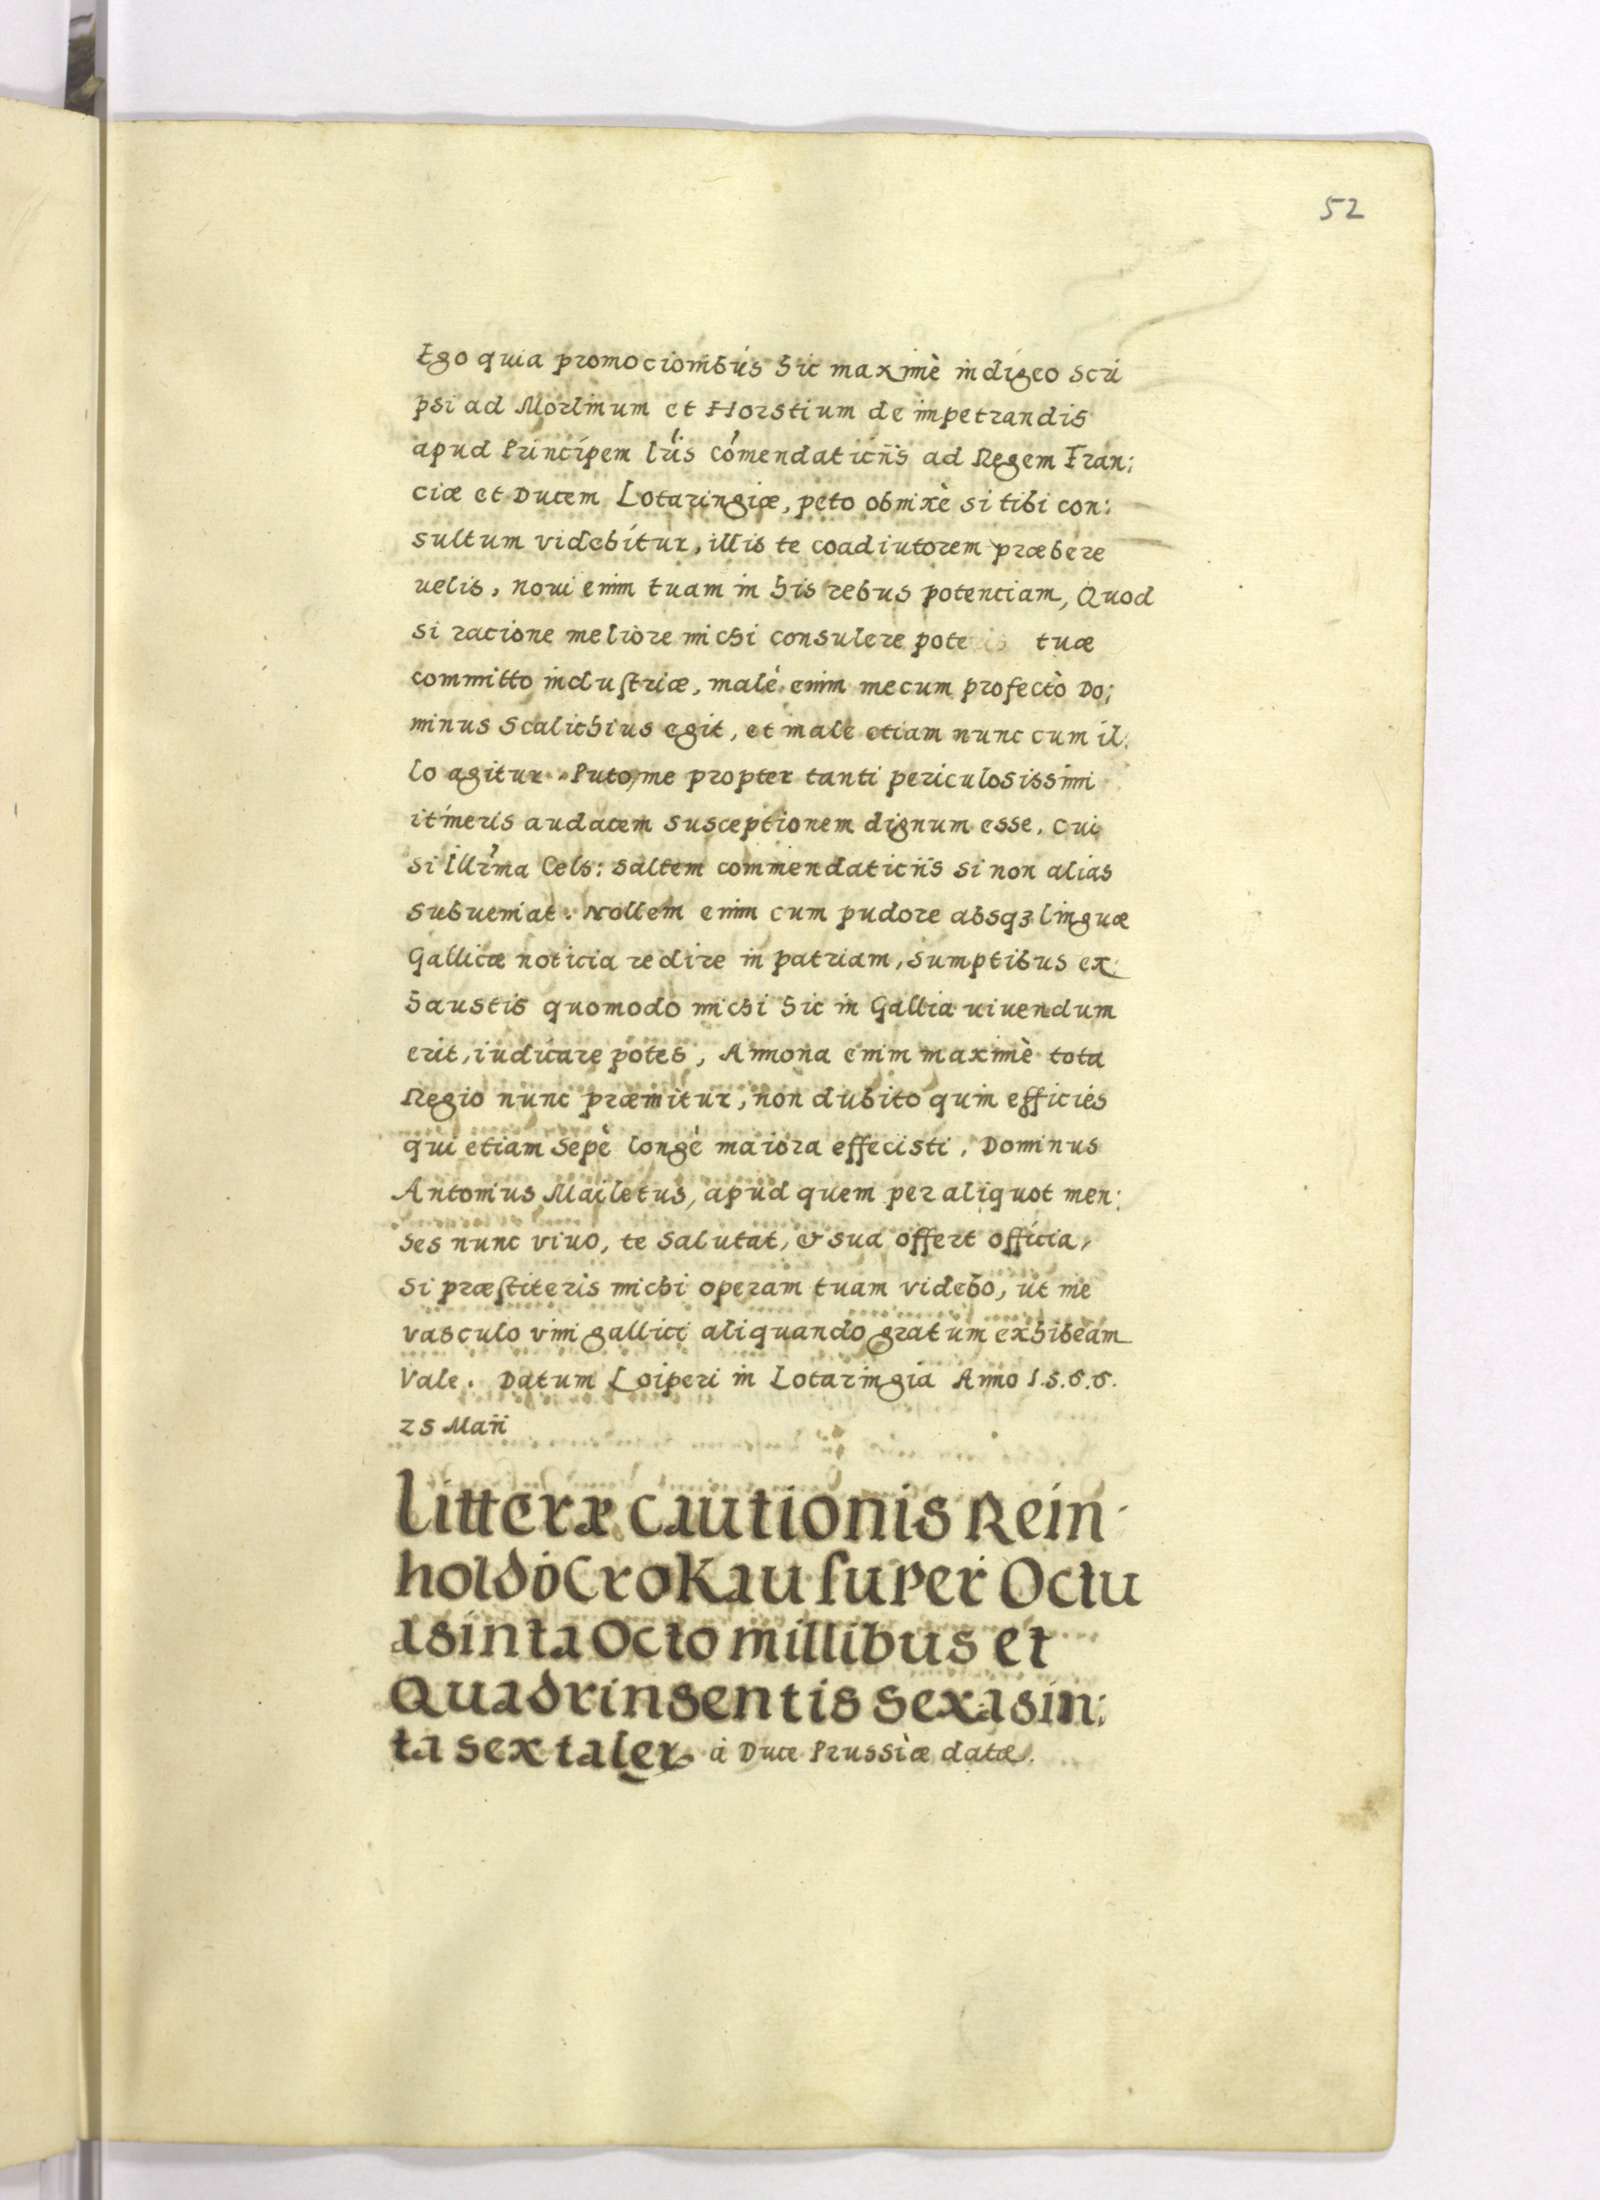 52
Ego quia promocionibus hic maximè indigeo scri
psi ad Morlinum et Horstium de impetrandis
apud Principem lr̃is cõmendaticiis ad Regem Fran:
ciæ et Ducem Lotaringiæ, peto obnixè si tibi con:
sultum videbitur, illis te coadiutorem præbere
uelis, noui enim tuam in his rebus potenciam, Quod
si racione meliore michi consulere poteris tuæ
committo industriæ, malè enim mecum profectò Do:
minus Scalichius egit, et male etiam nunc cum il:
lo agitur. Puto, me propter tanti periculosissimi
itineris audacem susceptionem dignum esse, cui
si Illr̃ma Cels: saltem commendaticiis si non alias
subueniat. Nollem enim cum pudore absqꝫ linguæ
Gallicæ noticia redire in patriam, sumptibus ex:
haustis quomodo michi hic in Gallia uiuendum
erit, iudicare potes, Annona enim maximè tota
Regio nunc præmitur, non dubito quin efficies
qui etiam sepè longè maiora effecisti, Dominus
Antonius Mailetus, apud quem per aliquot men:
ses nunc viuo, te salutat, & sua offert officia,
si præstiteris michi operam tuam videbo, ut me
vasculo vini gallici aliquando gratum exhibeam
Vale. Datum Loiperi in Lotaringia Anno 1.5.6.6.
25 Maii
Litteræ cautionis Rein
holdo Crokau super Octu
aginta Octo millibus et
Quadringentis sexagin:
ta sex taler à Duce Prussiæ datæ.